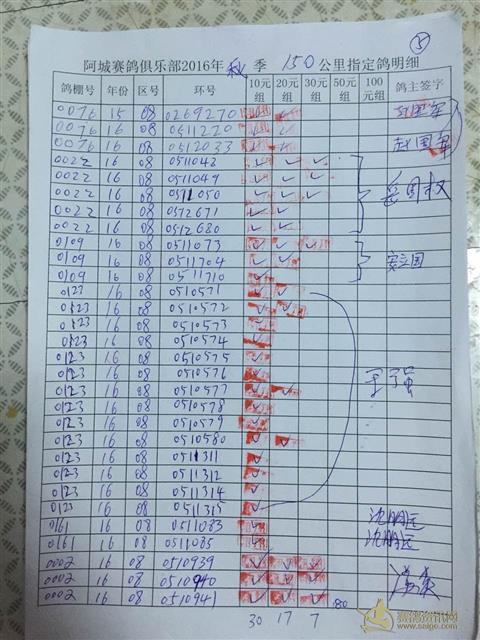 ⑤
阿城赛鸽俱乐部2016年秋季 150公里指定鸽明细
鸽棚号 年份 区号 环号 10元组 20元组 30元组 50元组 100元组 鸽主签字
0076 15 08 0269270 ✓ ✓ 赵国军
0076 16 08 0511220 ✓ ✓
0076 16 08 0512033 ✓ ✓ 赵国军
0022 16 08 0511042 ✓ ✓ ✓
0022 16 08 0511049 ✓ ✓ ✓
0022 16 08 0511050 ✓ ✓ ✓ 岳国权
0022 16 08 0512671 ✓ ✓
0022 16 08 0512680 ✓ ✓
0109 16 08 0511073 ✓ ✓ ✓
0109 16 08 0511704 ✓ ✓ 立国
0109 16 08 0511710 ✓
0123 16 08 0510571 ✓ ✓
0123 16 08 0510572 ✓ ✓
0123 16 08 0510573 ✓
0123 16 08 0510574 ✓
0123 16 08 0510575 ✓
0123 16 08 0510576 ✓ 王子强
0123 16 08 0510577 ✓ ✓
0123 16 08 0510578 ✓
0123 16 08 0510579 ✓
0123 16 08 0510580 ✓ ✓
0123 16 08 0511311 ✓
0123 16 08 0511312 ✓
0123 16 08 0511314 ✓
0123 16 08 0511315 ✓
0161 16 08 0511083 ✓ 沈鹏远
0161 16 08 0511085 ✓ 沈鹏远
0002 16 08 0510939 ✓ ✓ ✓
0002 16 08 0510940 ✓ ✓ ✓
0002 16 08 0510941 ✓ ✓ ✓
30 17 7
赛鸽资讯网
www.saige.com